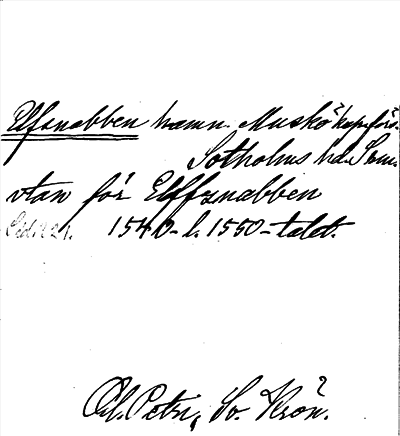 Elfsnabben hamn. Muskö kapsförs.
Sotholms hd. Söm.
vtan för Elffznabben
1540-l. 1550-talet.
Ol. Petri, Sv. Krön.